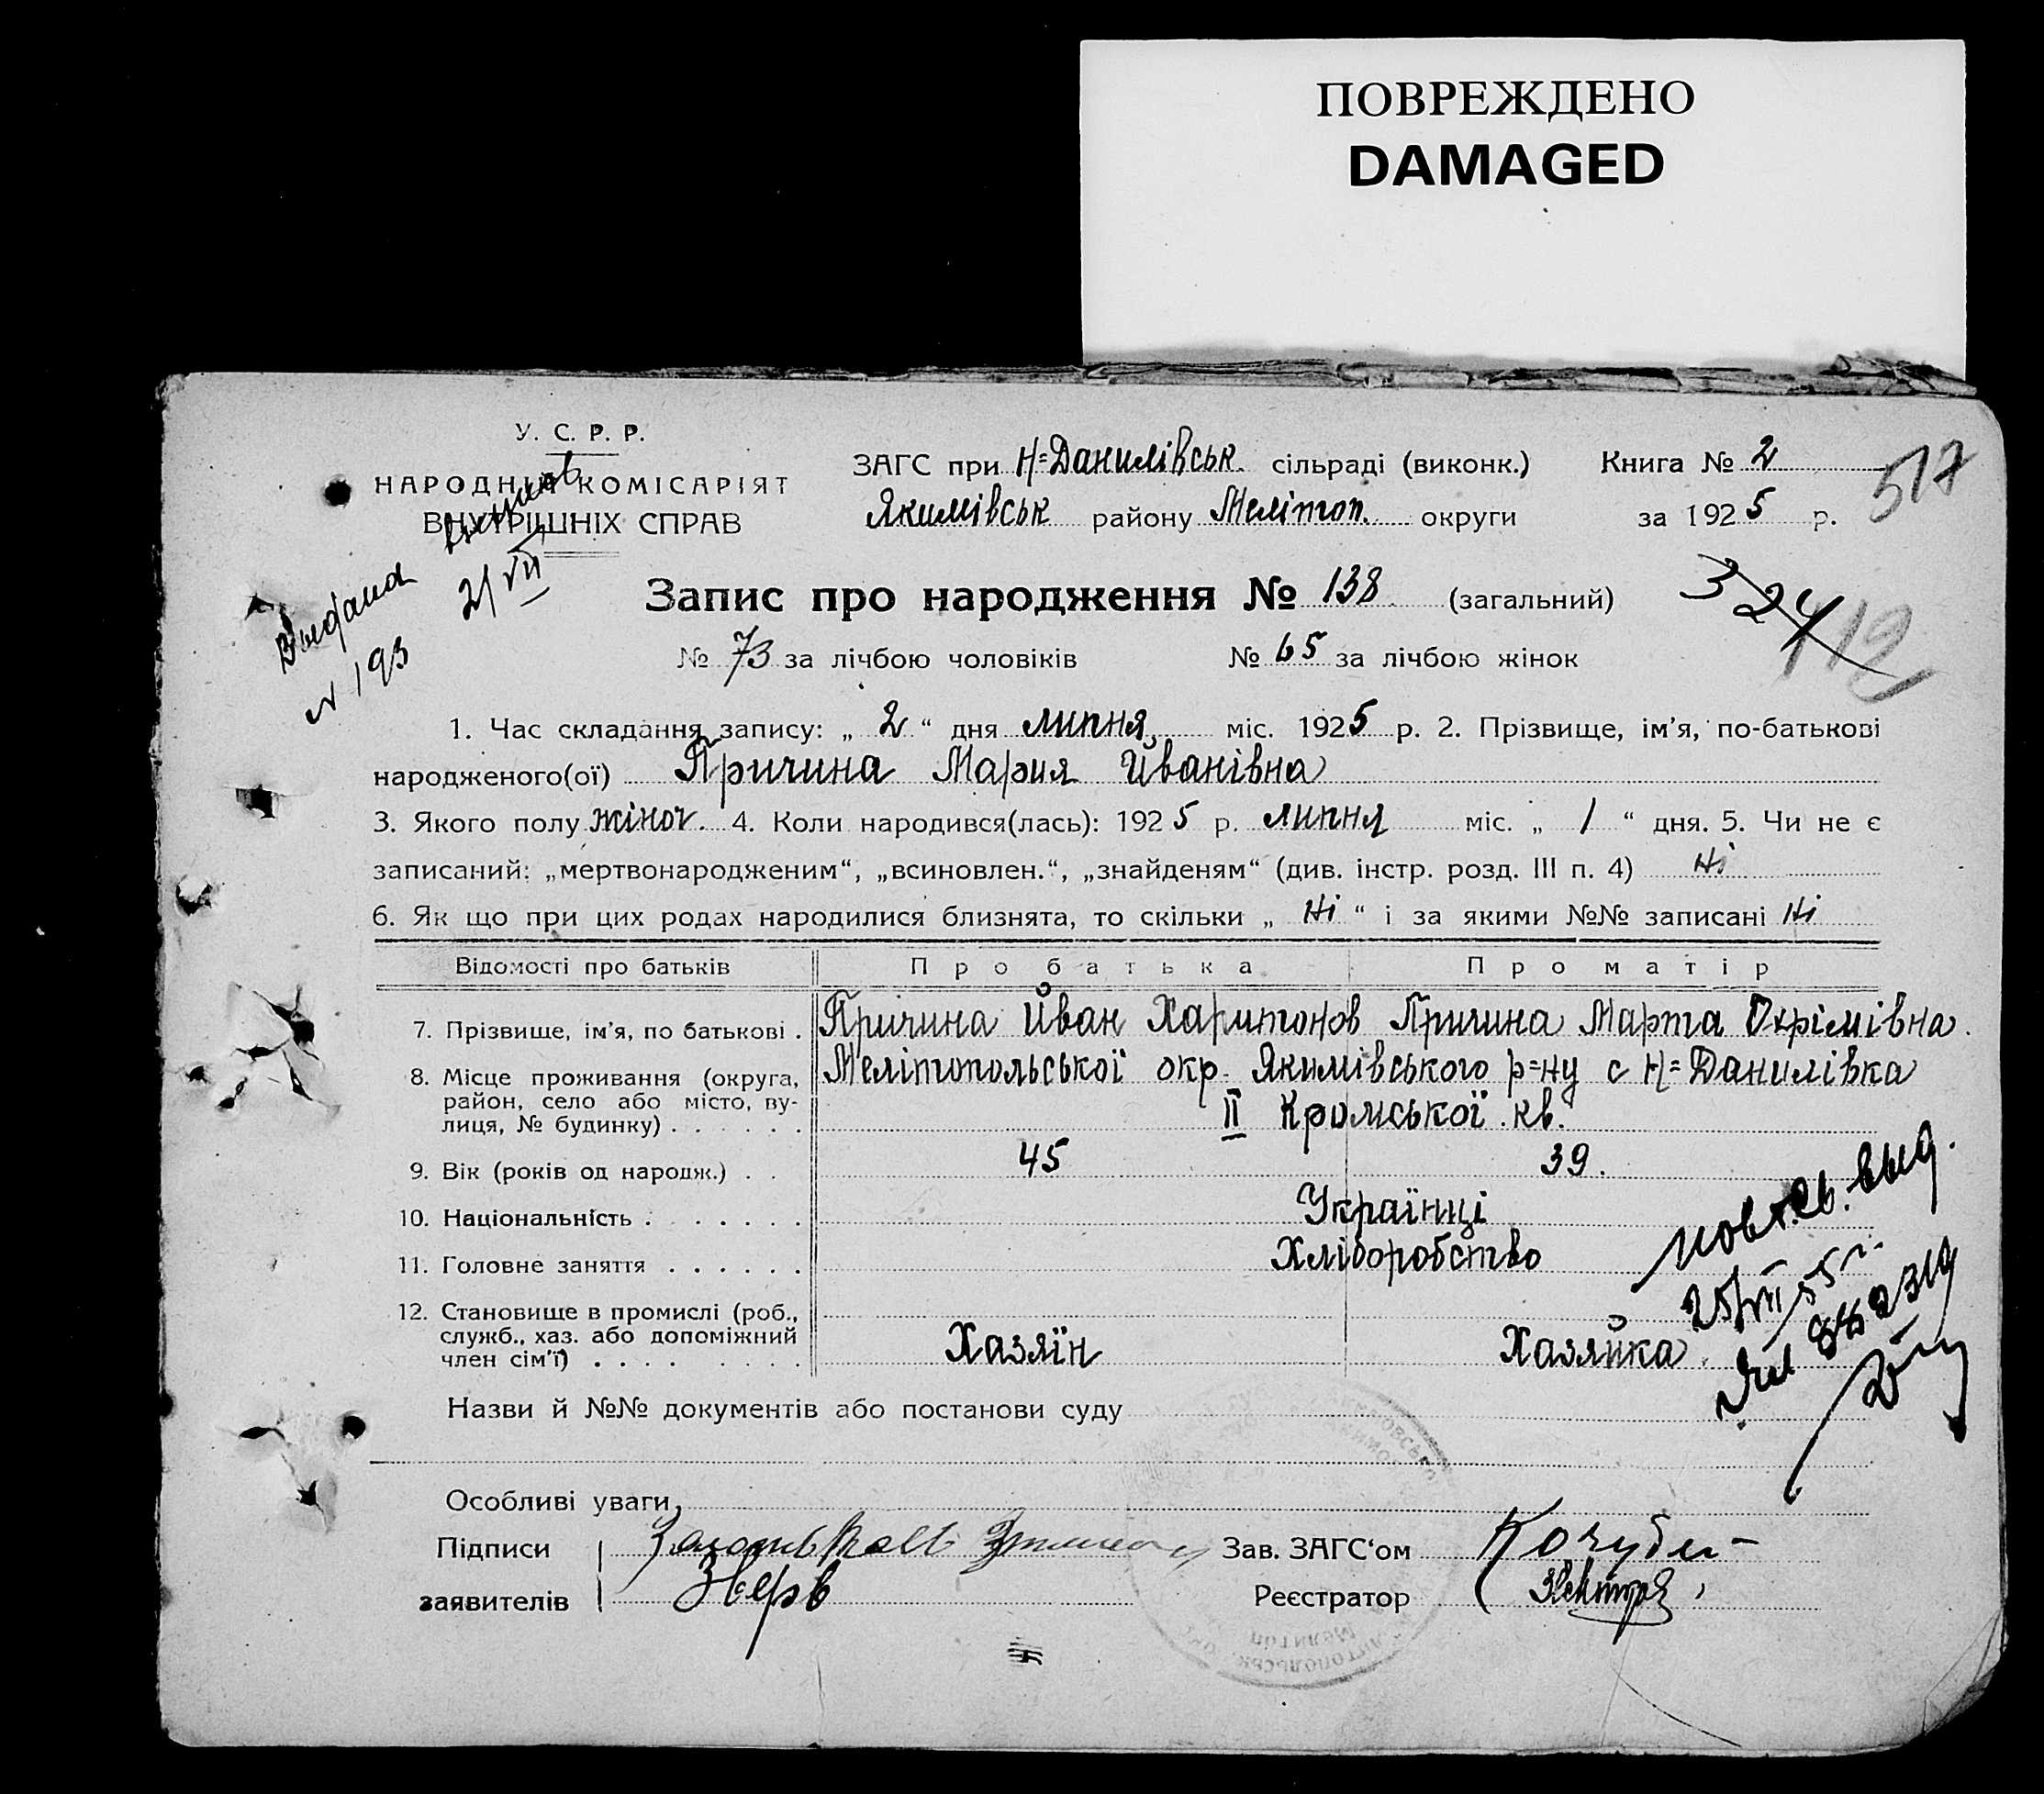 ПОВРЕЖДЕНО
DAMAGED
У. С. Р. Р.
НАРОДНІЙ КОМІСАРІЯТ
ВНУТРІШНІХ СПРАВ
ЗАГС при Н=Данилівськ. сільраді (виконк.) Книга № 2
517
Якимівськ району Мелітоп. округи за 1925 р.
Выдана
21/VII
N 193
Запис про народження № 138 (загальний)
324
112
№ 73 за лічбою чоловіків № 65 за лічбою жінок
1. Час складання запису: „ 2 “ дня липня міс. 1925 р. 2. Прізвище, ім’я, по-батькові
народженого(ої) Причина Мария Йванівна
3. Якого полу жіноч. 4. Коли народився(лась): 1925 р. липня міс. „ 1 “ дня. 5. Чи не є
записаний: „мертвонародженим“, „всиновлен.“, „знайденям“ (див. інстр. розд. III п. 4) Ні
6. Як що при цих родах народилися близнята, то скільки „ Ні “ і за якими №№ записані Ні
Відомості про батьків Про батька Про матір
7. Прізвище, ім’я, по батькові . Причина Йван Харитонов Причина Марта Охрімівна.
8. Місце проживання (округа, Мелітопольської окр. Якимівського р=ну с Н=Данилівка
район, село або місто, ву-
лиця, № будинку) . . . . . . II Кромської кв.
9. Вік (років од народж.) . . 45 39.
10. Національність . . . . . . . Українці
11. Головне заняття . . . . . . Хліборобство
12. Становище в промислі (роб.,
служб., хаз. або допоміжний Хазяїн Хазяйка
член сім’ї) . . . . . . . .
повт. св. выд.
25/VII 55 г.
Назви й №№ документів або постанови суду
Особливі уваги
Підписи Зав. ЗАГС‘ом Кочубей
заявителів Звер Реєстратор